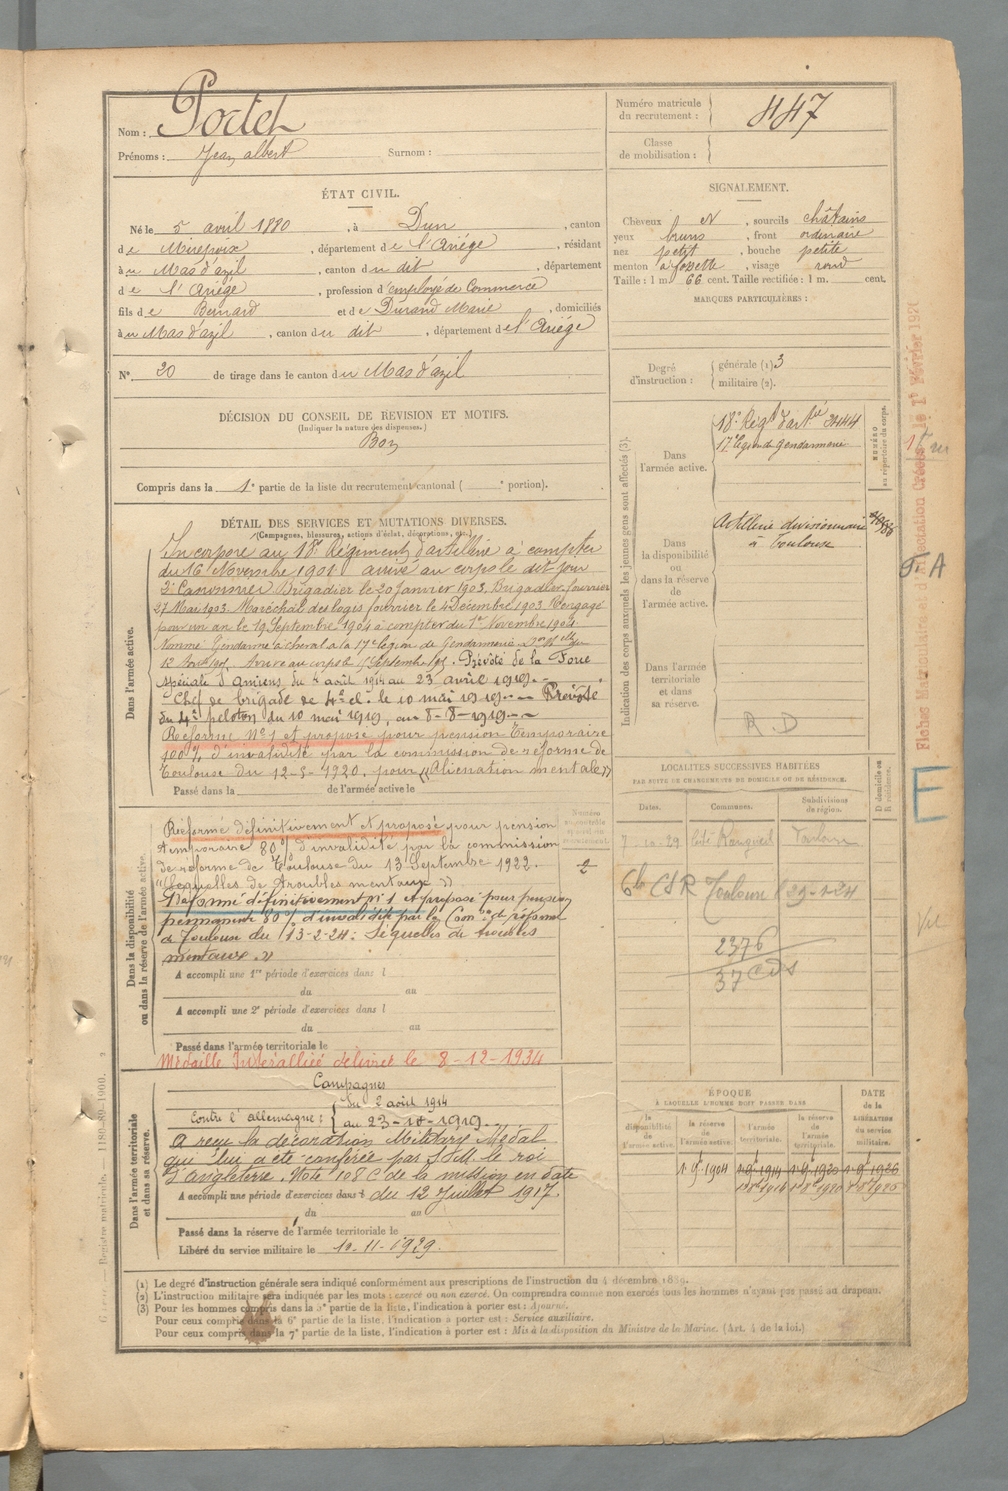 Nom : Portet
Prénoms : Jean albert Surnom :
Numéro matricule du recrutement : 447
Classe de mobilisation :
ÉTAT CIVIL.
Né le 5 avril 1880, à Dun, canton
de Mirepoix, département de l'Ariége, résidant
à u Mas d'azil, canton du dit, département
de l'Ariége, profession d'employé de Commerce
fils de Bernard et de Durand Marie, domiciliés
à u Mas d'azil, canton du dit, département de l'Ariége
N° 20 de tirage dans le canton du Mas d'azil
DÉCISION DU CONSEIL DE REVISION ET MOTIFS.
(Indiquer la nature des dispenses.)
Bon
Compris dans la 1e partie de la liste du recrutement cantonal ( e portion).
SIGNALEMENT.
Cheveux N, sourcils châtains
yeux bruns, front ordinaire
nez petit, bouche petite
menton à fossette, visage rond
Taille : 1 m. 66 cent. Taille rectifiée : 1 m. cent.
MARQUES PARTICULIÈRES :
Degré d'instruction : générale (1) 3
militaire (2).
DÉTAIL DES SERVICES ET MUTATIONS DIVERSES.
(Campagnes, blessures, actions d'éclat, décorations, etc.)
Dans l'armée active.
Incorporé au 18e Régiment d'artillerie à compter
du 16 Novembre 1901 arrivé au corps le dit jour
2e Canonnier Brigadier le 20 janvier 1903. Brigadier fourrier
27 Mai 1903. Maréchal des logis fourrier le 4 Décembre 1903 Rengagé
pour un an le 19 Septembre 1904 à compter du 1er Novembre 1904.
Nommé Gendarme à cheval à la 17e légion de Gendarmerie
Prévôté de la Place
spéciale d'Amiens du 4 août 1914 au 23 avril 1919.
Chef de brigade de 4e cl. le 10 mai 1919. Prévôté
du 4e peloton du 10 mai 1919, au 8-8-1919
Réformé N°1 et proposé pour pension temporaire
100% d'invalidité par la commission de réforme de
Toulouse du 12-5-1920. pour "Aliénation mentale"
Passé dans la de l'armée active le
Dans la disponibilité ou dans la réserve de l'armée active.
Réformé définitivement et proposé pour pension
temporaire 80% d'invalidité par la commission
de réforme de Toulouse du 13 Septembre 1922.
"Séquelles de troubles mentaux"
Réformé définitivement n°1 et proposé pour pension
permanente 80% d'invalidité par la Com on de réforme
de Toulouse du 13-2-24 : Séquelles de troubles
mentaux. »
A accompli une 1re période d'exercices dans l
du au
A accompli une 2e période d'exercices dans l
du au
Passé dans l'armée territoriale le
Médaille Interalliée délivrée le 8-12-1934
Dans l'armée territoriale et dans sa réserve.
Campagnes
Contre l'allemagne : du 2 août 1914
au 23-10-1919
A reçu la décoration Military Medal
qui lui a été conférée par S. M. le roi
d'angleterre. Note 108 C de la mission en date
A accompli une période d'exercices dans l du 12 Juillet 1917.
du au
Passé dans la réserve de l'armée territoriale le
Libéré du service militaire le 10-11-1929.
Indication des corps auxquels les jeunes gens sont affectés (3).
NUMÉRO au répertoire du corps.
Dans l'armée active.
18e Régt d'artie 2444
17e légion de Gendarmerie
Dans la disponibilité ou dans la réserve de l'armée active.
Artillerie divisionnaire
à Toulouse
Dans l'armée territoriale et dans sa réserve.
R.D
LOCALITÉS SUCCESSIVES HABITÉES
PAR SUITE DE CHANGEMENTS DE DOMICILE OU DE RÉSIDENCE.
Dates. Communes. Subdivisions de région. D domicile ou R résidence.
7-10-29 Cité Rangueil Toulouse
CSR Toulouse 29-1-24
2376
37 CDS
Numéro au contrôle spécial du recrutement.
2
ÉPOQUE
À LAQUELLE L'HOMME DOIT PASSER DANS
la disponibilité de l'armée active. la réserve de l'armée active. l'armée territoriale. la réserve de l'armée territoriale. DATE de la LIBÉRATION du service militaire.
1-9-1904 1-9-1914 1-9-1920 1-9-1926
Fiches Matriculaires d'Affectation Créées le 1r Février 1921
E
(1) Le degré d'instruction générale sera indiqué conformément aux prescriptions de l'instruction du 4 décembre 1889.
(2) L'instruction militaire sera indiquée par les mots : exercé ou non exercé. On comprendra comme non exercés tous les hommes n'ayant pas passé au drapeau.
(3) Pour les hommes compris dans la 5e partie de la liste, l'indication à porter est : Ajourné.
Pour ceux compris dans la 6e partie de la liste, l'indication à porter est : Service auxiliaire.
Pour ceux compris dans la 7e partie de la liste, l'indication à porter est : Mis à la disposition du Ministre de la Marine. (Art. 4 de la loi.)